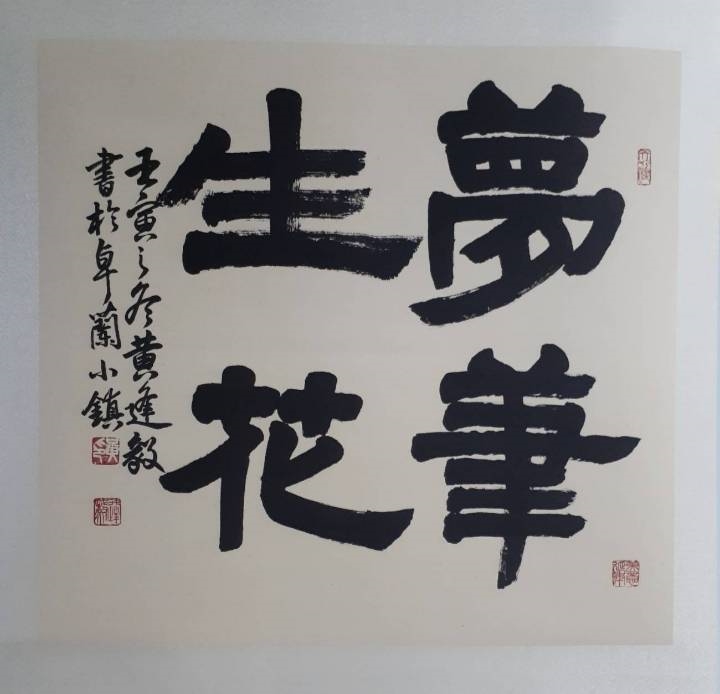 夢筆
生花
壬寅之冬黄逢毅
書於卓蘭小鎮